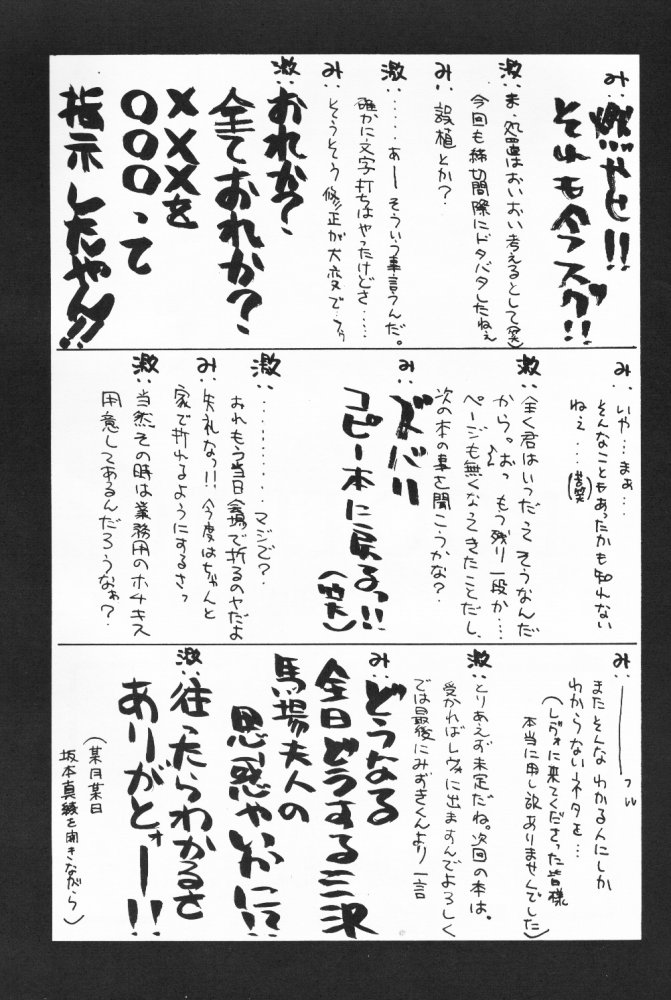 み:燃やせ!!
それも今スグ!!
激:ま、処置はおいおい考えるとして(笑)
今回も締切間際にドタバタしたねぇ
み:誤植とか?
激:……あーーそういう事言うんだ。
確かに文字打ちはやったけどさ……
み:そうそう修正が大変で…
激:おれか?
全ておれか?
×××を
○○○って
指示したやん!!
み:いや…まぁ…
そんなこともあったかも知れない
ねぇ…(苦笑)
激:全く君はいつだってそうなんだ
から。おっ もう残り一段か……
ページも無くなってきたことだし、
次の本の事を聞こうかな?
み:ズバリ
コピー本に戻るっ!!
激:………………マジで?
おれもう当日会場で折るのヤだよ
み:失礼なっ!!今度はちゃんと
家で折れるようにするさっ
激:当然その時は業務用のホチキス
用意してあるんだろうなぁ?
み:――――っ
またそんなわかる人にしか
わからないネタを…
(レヴォに来てくださった皆様
本当に申し訳ありませんでした)
激:とりあえず未定だね。次回の本は。
受かればレヴォに出ますんでよろしく
では最後にみずきくんより一言
み:どうなる
全日どうする三沢
馬場夫人の
思惑やいかに!?
激:往ったらわかるさ
ありがとォーー!!
(某月某日
坂本真綾を聞きながら)